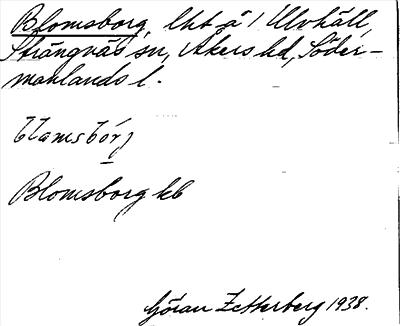 Blomsborg, lht å 1 Ulvhäll,
Strängnäs sn, Åkers hd, Söder-
manlands l.
Blomsborg kb
Göran Zetterberg 1938.